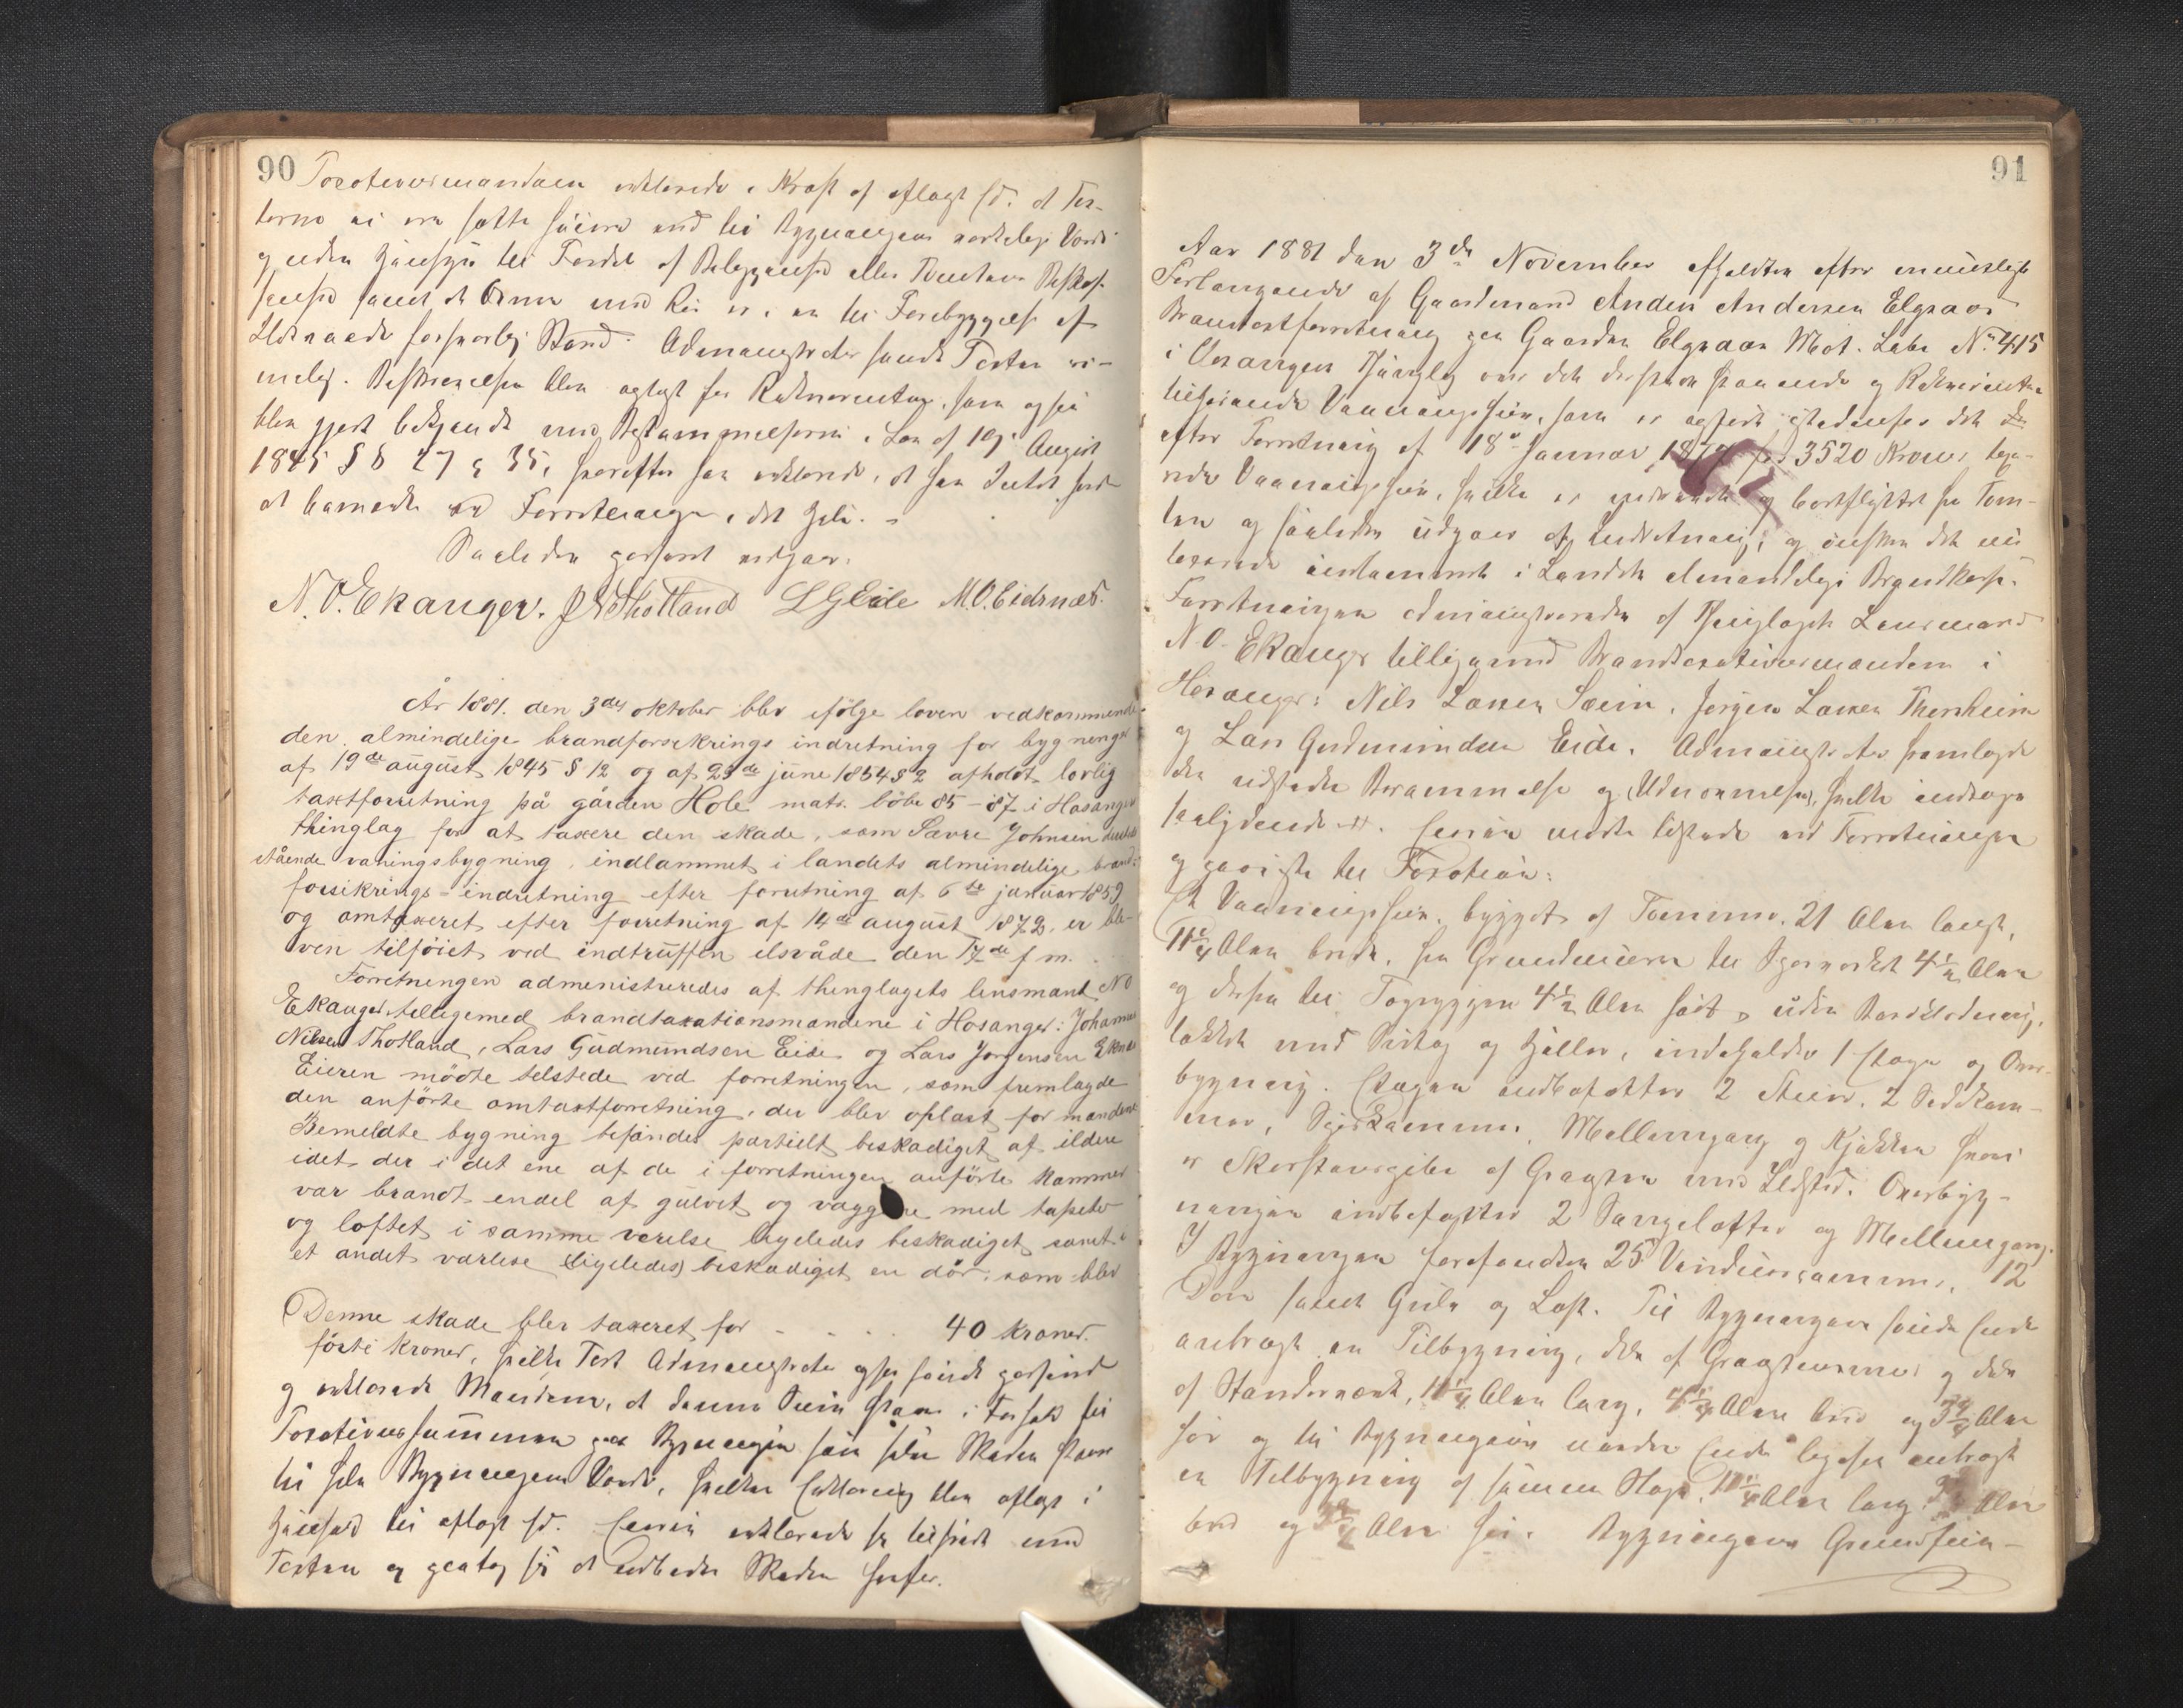 90
Taxationsmændene erklærede i Kraft af aflagt Ed, at Tax-
terne ei ere satte høiere end til Bygningens virkelige Værdi
og uden Hensyn til Fordel af Beliggenhed eller Tomtens Beskaf-
fenhed samt at Ovne med Rør er, en til Forebyggelse af
Ildsvaade forsvarlig Stand. Administrator fandt Taxten ri-
melig. Beskrivelsen blev oplæst for Rekvirenten, som ogsaa
blev gjort bekjendt med Bestemmelserne i Lov af 19de August
1845 §§ 27 & 35, hvorefter han erklærede, at han Intet havde
at bemærke ved Forretningen i det Hele.
Saaledes passeret vidgaaes.
N. O. Ekanger. J N Thotland L G Eide M. O. Eidsnæs.
År 1881. den 3die oktober blev ifølge loven vedkommende
den almindelige brandforsikrings indretning for bygninger
af 19de august 1845 § 12 og af 23de june 1854 § 2 afholdt lovlig
taxtforretning på gården Hole matr. løbe 85-87 i Hosanger
thinglag for at taxere den skade, som Sævre Johnsen
stående vaningsbygning, indlammet i landets almindelige brand-
forsikrings-indretning efter forretning af 6te januar 1859
og omtaxeret efter forretning af 14de august 1872, er ble-
ven tilføiet ved indtruffen ilsvåde den 17de f m.
Forretningen administreredes af thinglagets lensmand N O
Ekanger tilligemed brandtaxationsmændene i Hosanger: Johannes
Nilsen Thotland, Lars Gudmundsen Eide og Lars Jørgensen
Eieren mødte tilstede ved forretningen, som fremlagde
den anførte omtaxtforretning, der blev oplæst for mændene
Bemeldte bygning befandes partielt beskadiget af ilden
idet der i det ene af de i forretningen anførte kammer
var brandt endel af gulvet og væggene med tapeter
og loftet i samme værelse ligeledes beskadiget, samt i
et andet værelse (ligeledes) beskadiget en dør, som blev
Denne skade blev taxeret for - - - - 40 kroner.
førti kroner, hvilken Taxt Administrator ogsaa fandt passende
og erklærede Mændene, at denne Sum staar i Forhold til
Taxationssummen paa Bygningen som hele Skaden staar
til hele Bygningens Værdi, hvilken Erklæring blev aflagt i
Henhold til aflagt Ed. Eieren erklærede sig tilfreds med
Taxten og paatog sig at udbedre Skaden herfor.
91
Aar 1881 den 3die November afholdtes efter mundtligt
Forlangende af Gaardmand Anders Andersen Elgraas
Brandtaxtforretning paa Gaarden Elgraas Mat. Løbe No 415
i Hosangers Thinglag over det derpaa staaende og Rekvirenten
tilhørende Vaaningshuus, som er opført istedetfor det
efter Forretning af 18de Januar 18 for 3520 Kroner taxe-
rede Vaaningshuus, hvilket er nedrevet og bortflyttet fra Tom-
ten og saaledes udgaaer af Indretning, og ønskes det nu
taxerede indlemmet i Landets almindelige Brandkasse.
Forretningen administreredes af Thinglagets Lensmand
N O. Ekanger tilligemed Brandtaxationsmændene i
Hosanger: Nils Larsen Sæim, Jørgen Larsen Thorsheim
og Lars Gudmundsen Eide. Administrator fremlagde
den udstedte Berammelse og (Udnævnelse), hvilke indtages
saalydende #. Eieren mødte tilstede ved Forretningen
og paaviste til Taxation:
Et Vaaningshuus, bygget af Tømmer, 21 Alen langt,
11¼ Alen bredt, fra Grundmuren til Tagskjægget 4½ Alen
og derfra til Tagryggen 4½ Alen høit, uden Bordklædning,
tækket med Steentag og Heller, indeholder 1 Etage og Over-
bygning. Etagen indbefatter 2 Stuer, 2 Sovekam-
mer, Spiskammer, Mellemgang og Kjøkken hvori
er Skorsteenspibe af Graasteen med Ildsted. Overbyg-
ningen indbefatter 2 Sængelofter og Mellemgang.
I Bygningen forefindtes 25 Vinduesrammer, 12
Døre samt Gulv og Loft. Til Bygningens søndre Ende
anbragt en Tilbygning, dels af Graasteensmur og dels
af Standerværk, 11¼ Alen lang, 4¼ Alen bred og 3¾ Alen
høi og til Bygningens nordre Ende ligesaa anbragt
en Tilbygning af samme Slags, 11¼ Alen lang, Alen
bred og Alen høi. Bygningens Grundmur-